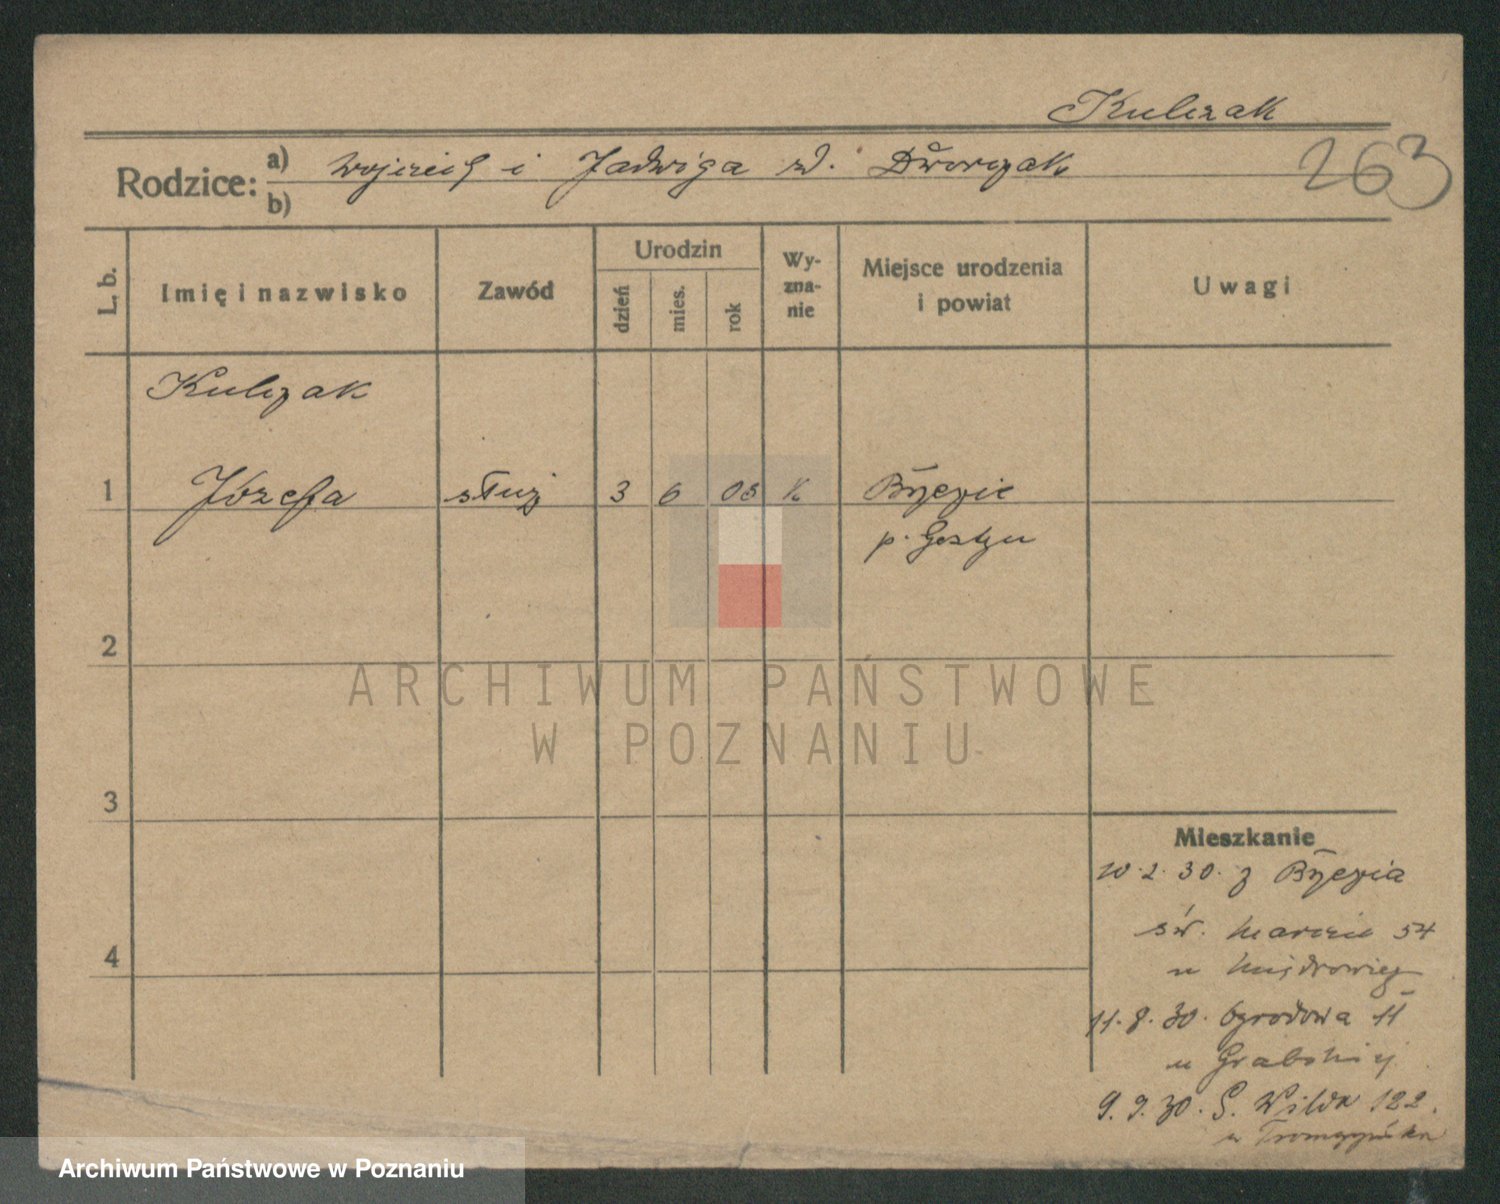 Kulczak
263
Rodzice: a) Wojciech i Jadwiga z d. Dworczak
b)
L. b. Imię i nazwisko Zawód Urodzin dzień mies. rok Wy- zna- nie Miejsce urodzenia i powiat Uwagi
Kulczak
1 Józefa służ 3 6 03 k Bżezie
p. Gostyń
2
ARCHIWUM PAŃSTWOWE
W POZNANIU
3
Mieszkanie
10.2.30. z Bżezia
św. Marcin 54
4
u
11.8.30. Ogrodowa 11
u Grabskiej
9.9.30. G. Wilda 122.
u
Archiwum Państwowe w Poznaniu